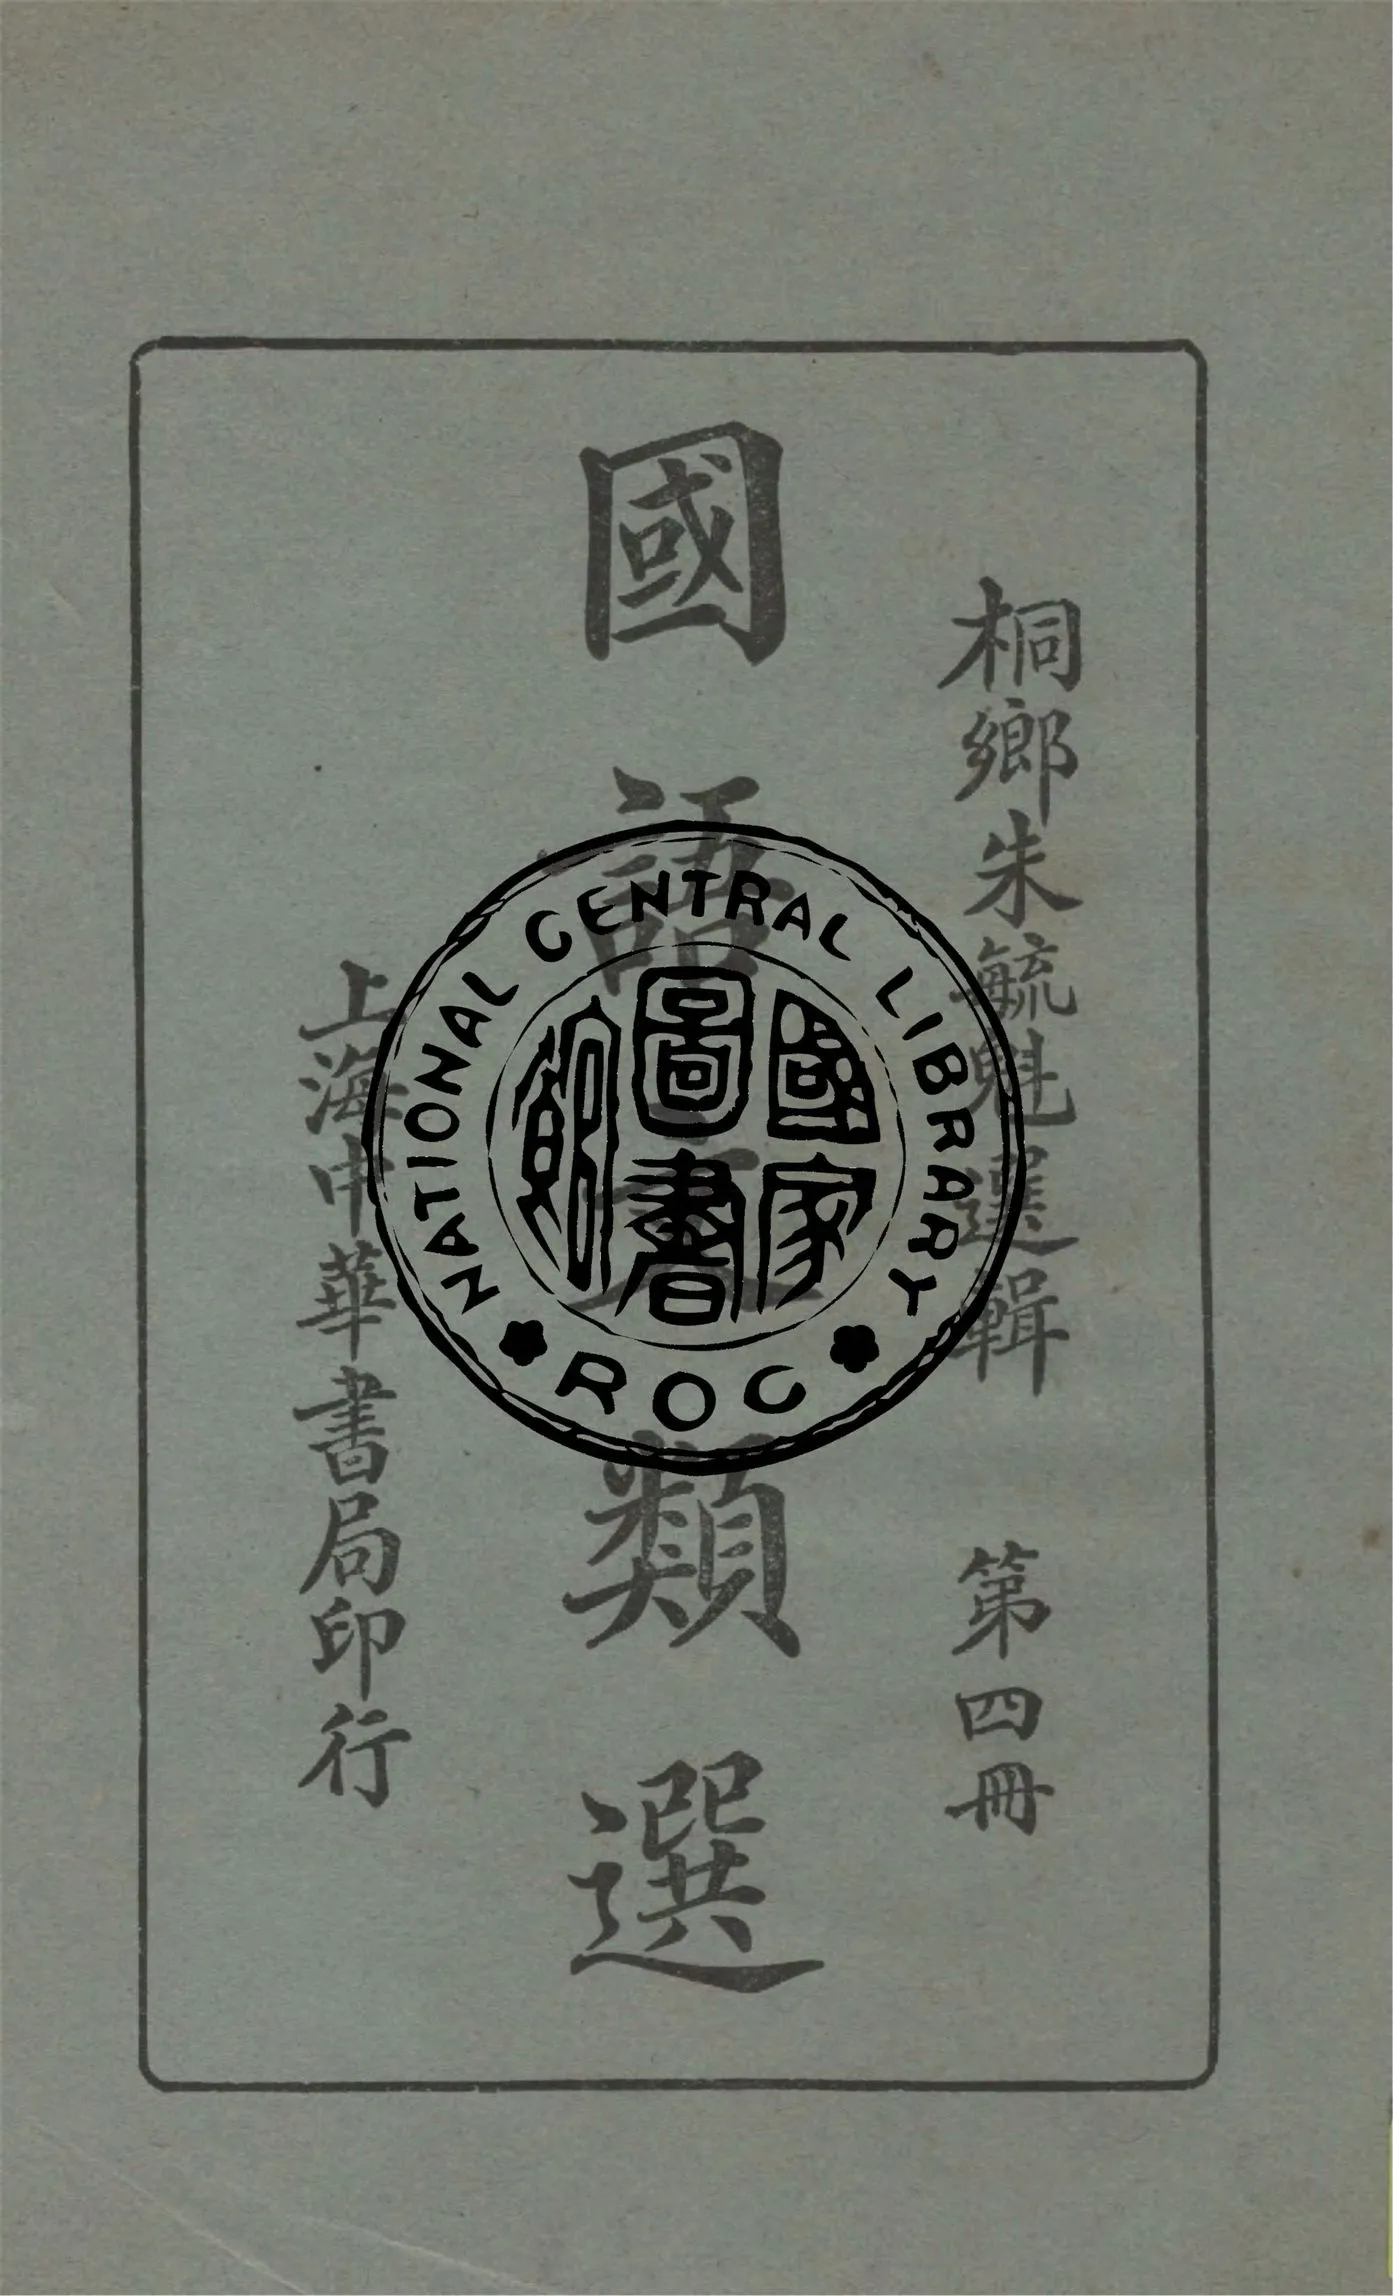 桐鄉朱毓魁選輯 第四冊
國語文類選
上海中華書局印行
NATIONAL CENTRAL LIBRARY
ROC
國家圖書館